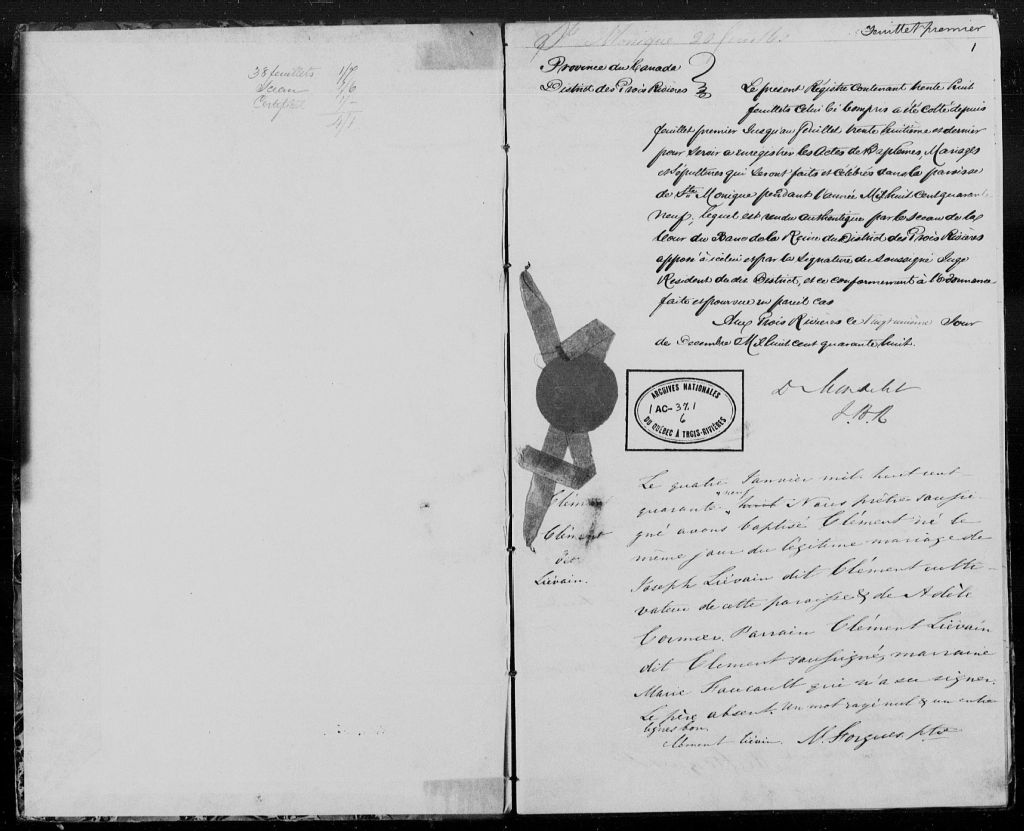 38 feuillets
Sceau
Certificat
Ste Monique
Feuillet premier
1
Province du Canada
District des Trois Rivières
Le present Régistre contenant trente huit
feuillets celui ci compris a été cotté depuis
feuillet premier jusqu'au feuillet trente huitième et dernier
pour servir a enregistrer les Actes de Baptêmes, Mariages
et Sépultures qui seront faits et célébrés dans la paroisse
de Ste Monique pendant l'année Mil huit cent quarante
neuf, lequel est rendu authentique par le Sceau de la
Cour du Banc de la Reine du District des Trois Rivières
apposé à icelui et par la signature du soussigné Juge
Resident du dit District, et ce conformement à l'Ordonnance
faite et pourvue en pareil cas
Aux Trois Rivières ce vingt unième Jour
de Decembre Mil huit cent quarante huit.
D. Mondelet
J.B.R
ARCHIVES NATIONALES
AC-37.1
6
DU QUÉBEC À TROIS-RIVIÈRES
Clément
Clément
dit
Liévain.
Le quatre Janvier mil huit cent
quarante neuf huit Nous prêtre soussi-
gné avons baptisé Clément né le
même jour du légitime mariage de
Joseph Liévain dit Clément culti-
vateur de cette paroisse & de Adèle
Cormier. Parrain Clément Liévain
dit Clement soussigné, marraine
Marie Foucault qui n'a su signer.
Le père absent. Un mot rayé nul & un entre
lignes bon.
Clément liévin. M. Forgues Ptre